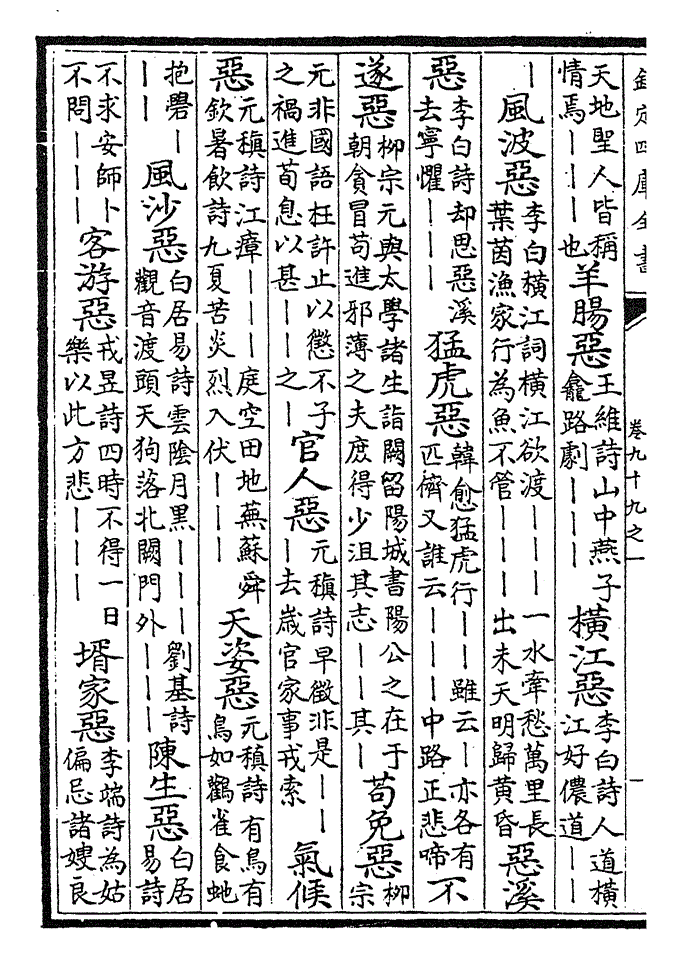 欽定四庫全書
卷九十九之一
一
天地聖人皆稱情焉｜｜｜也羊腸惡王維詩山中燕子龕路劇｜｜｜橫江惡李白詩人道橫江好儂道｜｜
｜風波惡李白橫江詞橫江欲渡｜｜｜一水牽愁萬里長葉茵漁家行為魚不管｜｜｜出未天明歸黄昏惡溪
惡李白詩却思惡溪去寧懼｜｜｜猛虎惡韓愈猛虎行｜｜雖云｜亦各有匹儕又誰云｜｜｜中路正悲啼不
遂惡柳宗元與太學諸生詣闕留陽城書陽公之在于朝貪冒苟進邪薄之夫庶得少沮其志｜｜其｜苟免惡柳宗
元非國語枉許止以懲不子之禍進荀息以甚｜｜之｜官人惡元稹詩早徵非是｜｜｜去歲官家事戎索氣候
惡元稹詩江瘴｜｜｜庭空田地蕪蘇舜欽暑飲詩九夏苦炎烈入伏｜｜｜天姿惡元稹詩有鳥有鳥如鸛雀食虵
抱礐｜｜｜風沙惡白居易詩雲陰月黒｜｜｜劉基詩觀音渡頭天狗落北闕門外｜｜｜陳生惡白居易詩
不求安師卜不問｜｜｜客游惡戎昱詩四時不得一日樂以此方悲｜｜｜壻家惡李端詩為姑偏忌諸嫂良